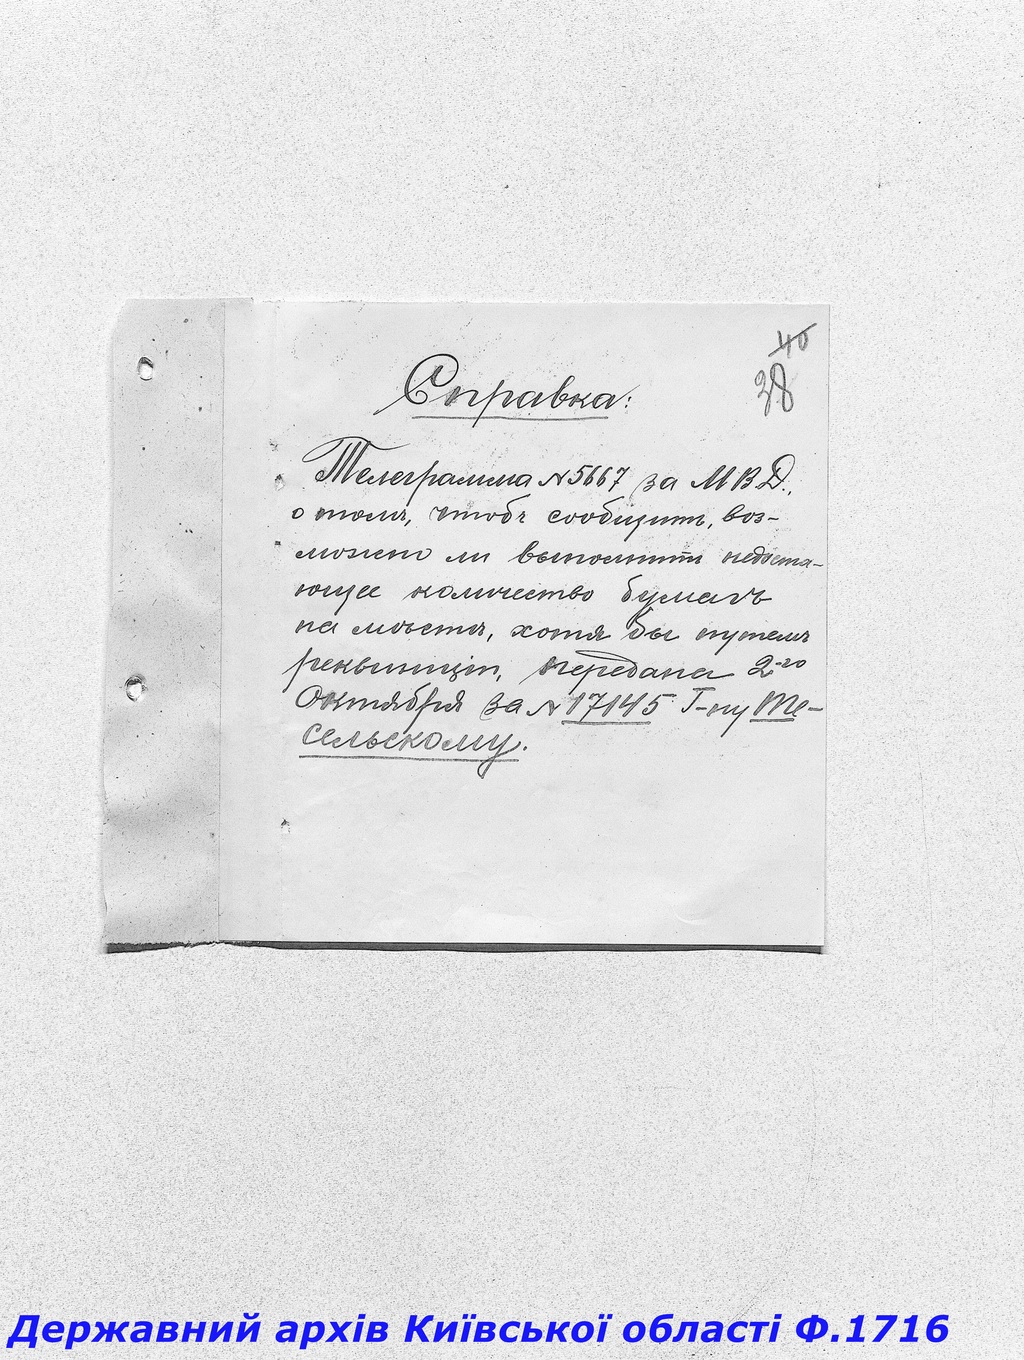 40
38
Справка:
Телеграмма №5667 за МВД.,
о томъ, чтобъ сообщить, воз-
можно ли выполнить недоста-
ющее количество бумагъ
на мѣстѣ, хотя бы путемъ
реквизиціи, передана 2-го
Октября за №17145 Г-ну Те-
сельскому.
Державний архів Київської області Ф.1716